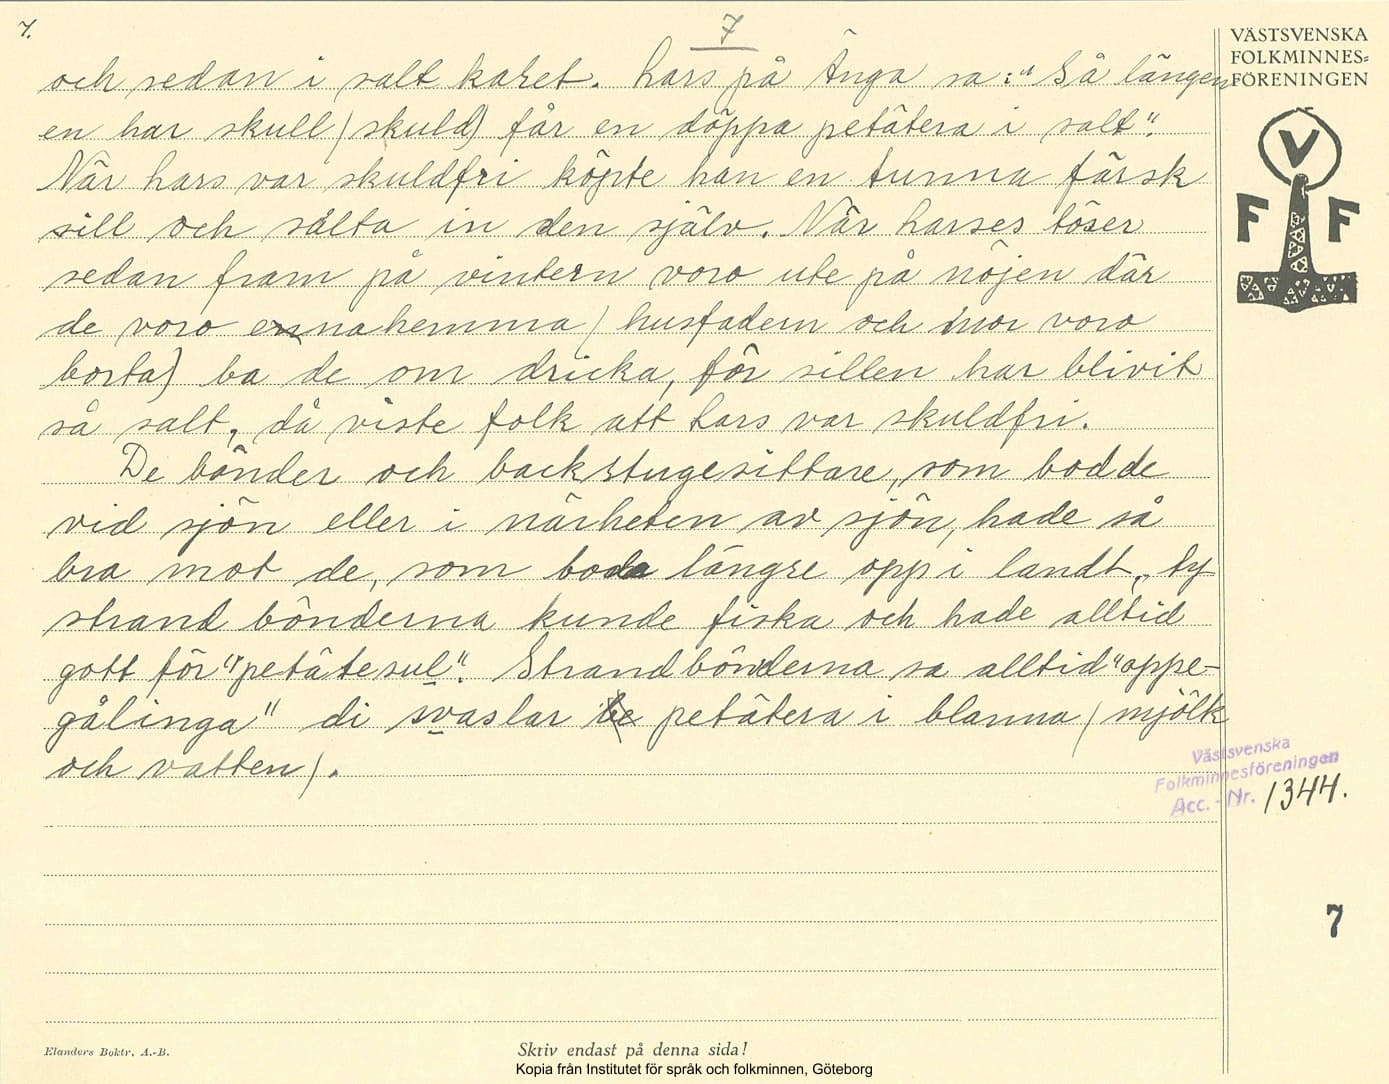 7.
7
VÄSTSVENSKA
FOLKMINNES=
FÖRENINGEN
och sedan i salt karet. Lars på Änga sa: "Så längen
en har skull (skuld) får en döppa petätera i salt".
När Lars var skuldfri köpte han en tunna färsk
sill och sålta in den själv. När Larses töser
sedan fram på vintern voro ute på nöjen där
de voro ennahemma (husfadern och mor voro
borta) ba de om dricka, för sillen har blivit
så salt, då viste folk att Lars var skuldfri.
De bönder och backstugesittare, som bodde
vid sjön eller i närheten av sjön, hade så
bra mot de, som boda längre opp i landt, ty
strand bönderna kunde fiska och hade alltid
gott för "petätesul". Strandbönderna sa alltid "oppe-
gålinga" di svaslar be petätera i blanna (mjölk
och vatten).
V
F F
Västsvenska
Folkminnesföreningen
Acc. - Nr. 1344.
7
Elanders Boktr. A.-B.
Skriv endast på denna sida!
Kopia från Institutet för språk och folkminnen, Göteborg